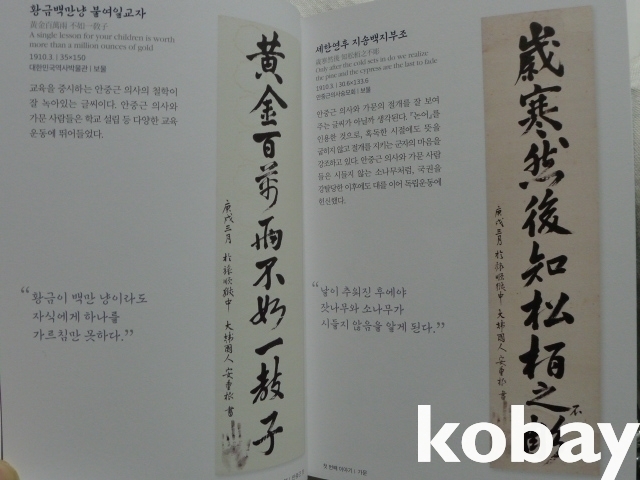 황금백만냥 불여일교자
黃金百萬兩 不如一敎子
A single lesson for your children is worth
more than a million ounces of gold
1910.3 | 35×150
대한민국역사박물관 | 보물
교육을 중시하는 안중근 의사의 철학이
잘 녹아있는 글씨이다. 안중근 의사와
가문 사람들은 학교 설립 등 다양한 교육
운동에 뛰어들었다.
“황금이 백만 냥이라도
자식에게 하나를
가르침만 못하다.”
黃金百萬兩不如一敎子
庚戌三月 於旅順獄中 大韓國人 安重根 書
세한연후 지송백지부조
歲寒然後 知松栢之不彫
Only after the cold sets in do we realize
the pine and the cypress are the last to fade
1910.3 | 30.6×133.6
안중근의사숭모회 | 보물
안중근 의사와 가문의 절개를 잘 보여
주는 글씨가 아닐까 생각된다. 『논어』를
인용한 것으로, 혹독한 시절에도 뜻을
굽히지 않고 절개를 지키는 군자의 마음을
강조하고 있다. 안중근 의사와 가문 사람
들은 시들지 않는 소나무처럼, 국권을
강탈당한 이후에도 대를 이어 독립운동에
헌신했다.
“날이 추워진 후에야
잣나무와 소나무가
시들지 않음을 알게 된다.”
歲寒然後知松栢之不
庚戌三月 於旅順獄中 大韓國人 安重根 書
첫 번째 이야기 | 가문
kobay